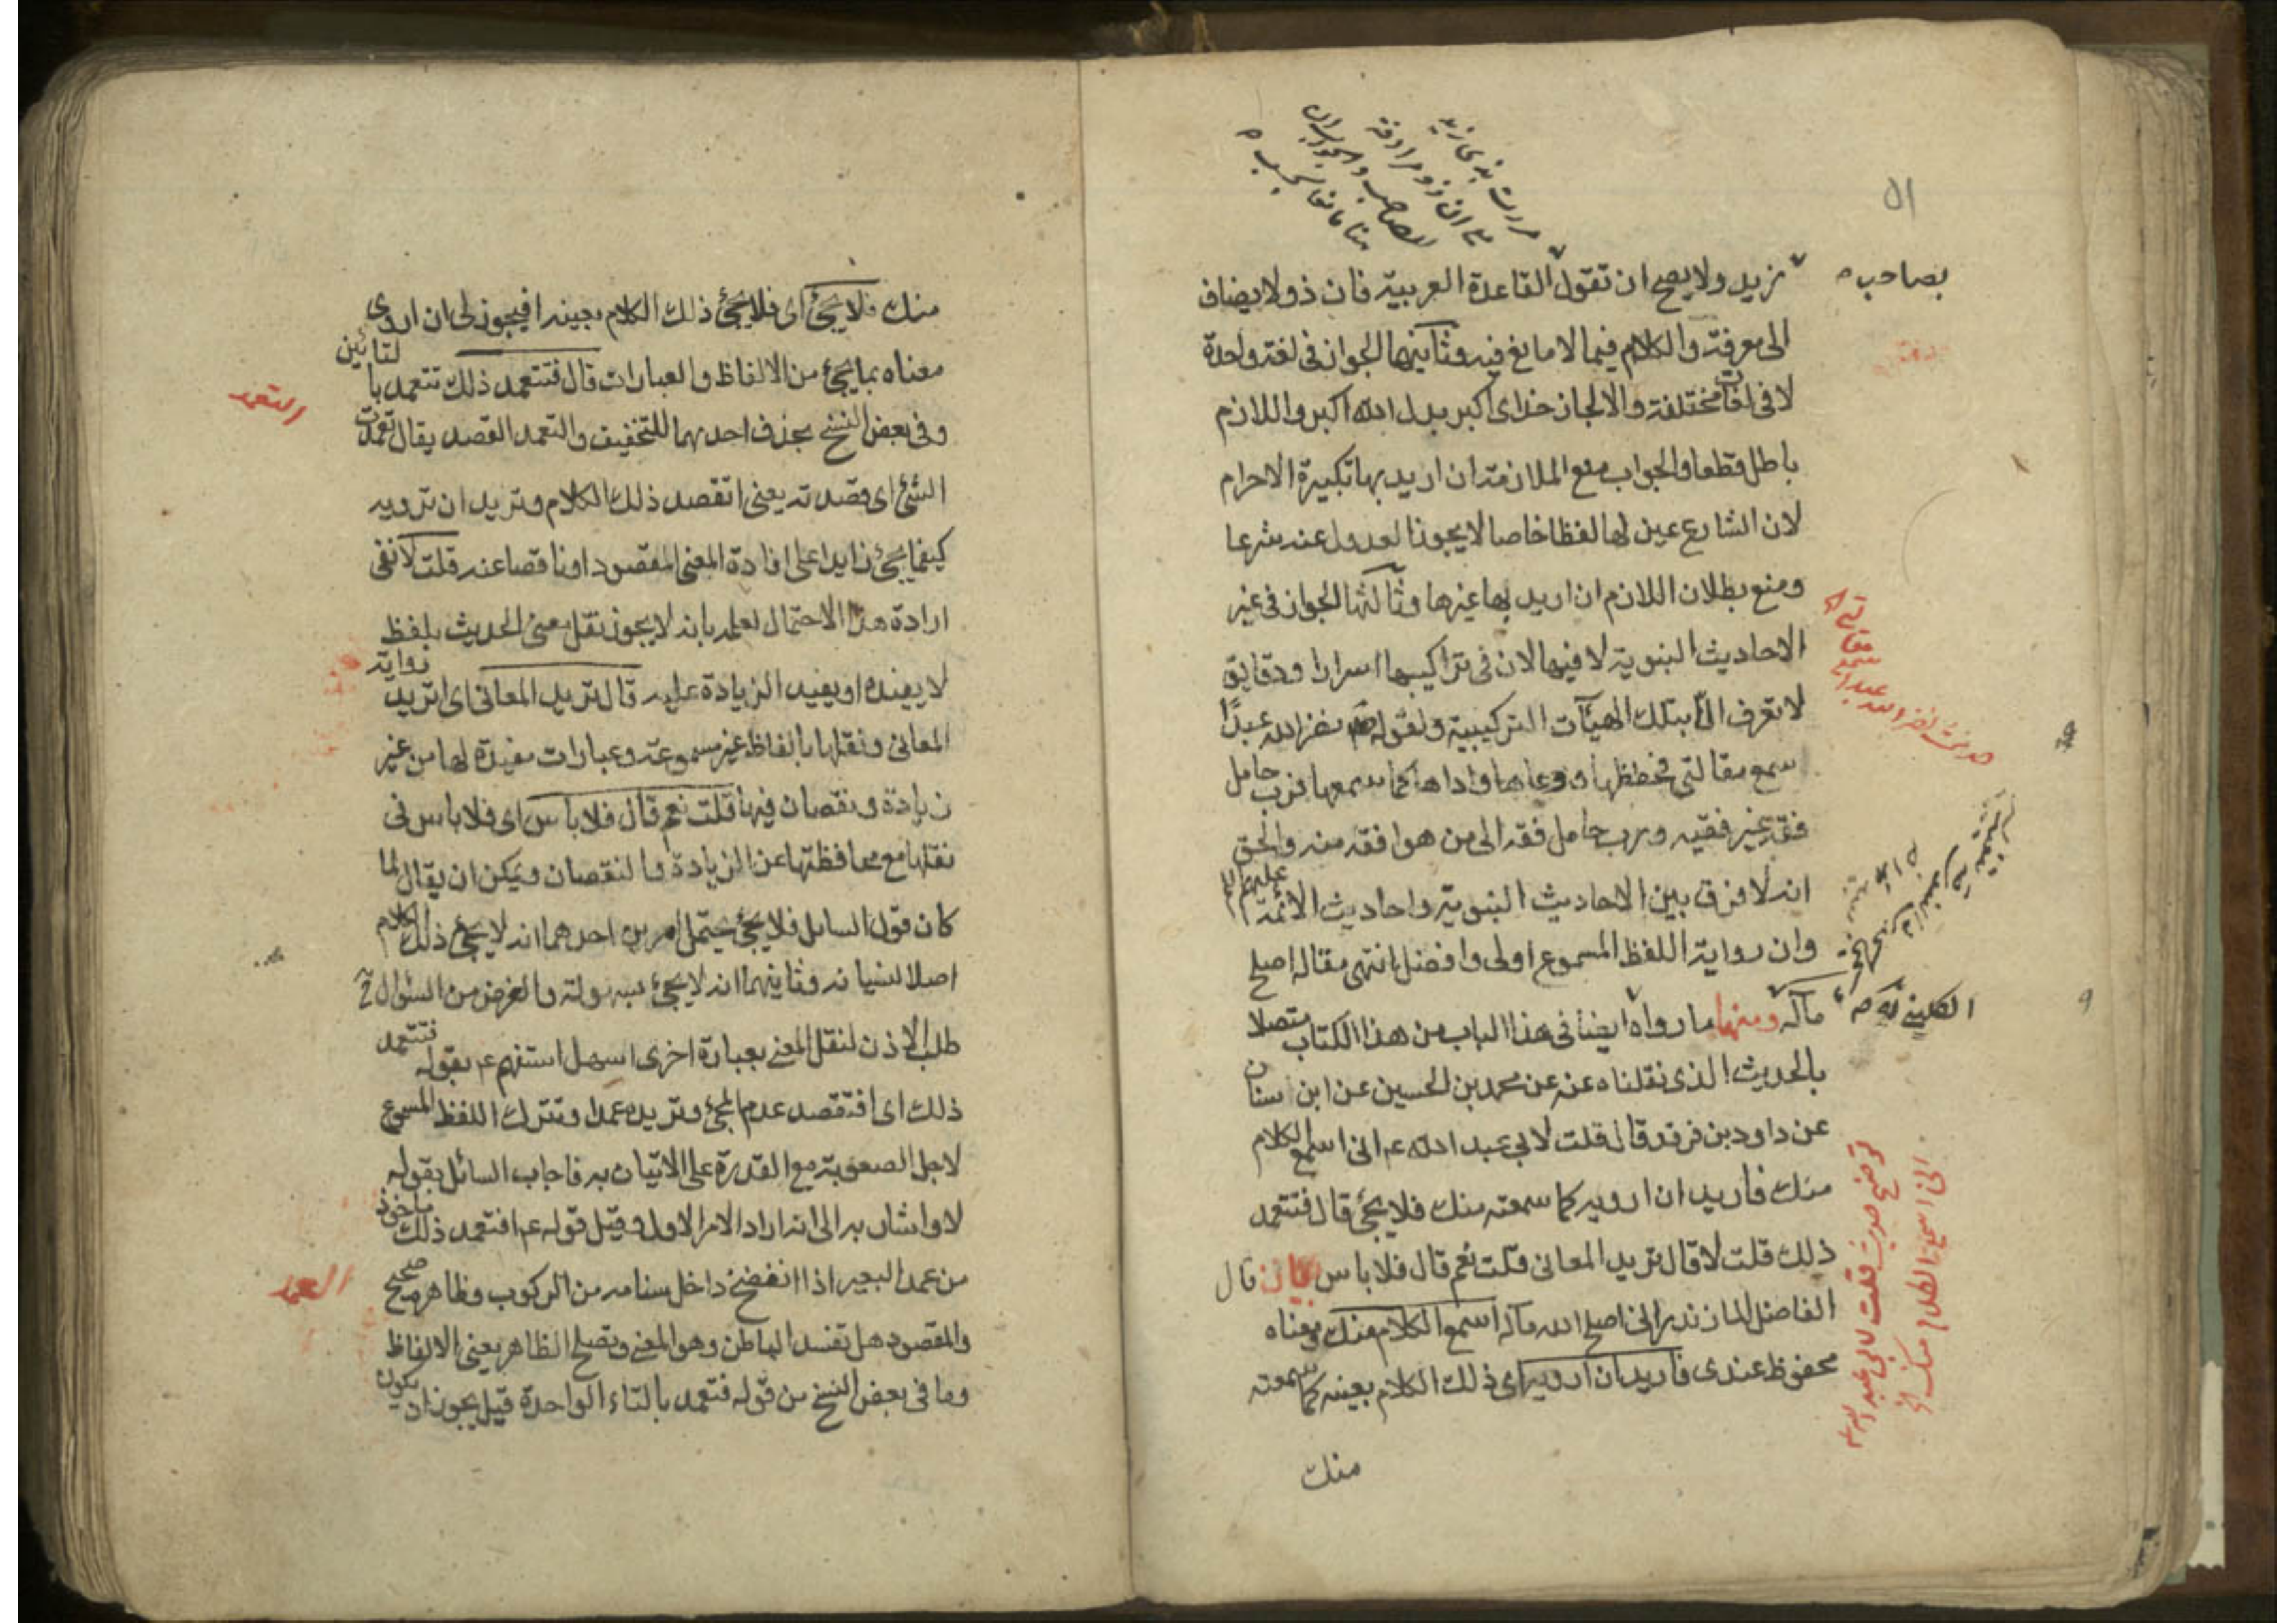 ٥١
بصاحب
مررت بذي زيد
بزيد ولا يصح ان تقول القاعدة العربية فان ذو لا يضاف
الى معرفة والكلام فيما لا مانع فيه وثانيهما الجواز في لغة واحدة
لا في لغات مختلفة والا لجاز خداى اكبر بدل الله اكبر واللازم
باطل قطعا والجواب منع الملازمة ان اريد بها تكبيرة الاحرام
لان الشارع عين لها لفظا خاصا لا يجوز العدول عنه شرعا
ومنع بطلان اللازم ان اريد بها غيرها وثالثها الجواز في غير
الاحاديث النبوية لا فيها لان في تراكيبها اسرارا ودقايق
لا تعرف الا بتلك الهيآت التركيبية ولقوله ص نضر الله عبدًا
سمع مقالتي فحفظها ووعاها واداها كما سمعها فرب حامل
فقه غير فقيه ورب حامل فقه الى من هو افقه منه والحق
انه لا فرق بين الاحاديث النبوية واحاديث الائمة عليهم
وان رواية اللفظ المسموع اولى وافضل انتهى مقاله اصلح
مآله ومنها ما رواه ايضا في هذا الباب من هذا الكتاب متصلا
الكليني
بالحديث الذي نقلناه عنه عن محمد بن الحسين عن ابن سنان
عن داود بن فرقد قال قلت لابي عبد الله عم اني اسمع الكلام
منك فاريد ان ارويه كما سمعته منك فلا يجئ قال فتتعمد
ذلك قلت لا قال تريد المعاني قلت نعم قال فلا باس بيان قال
الفاضل المازندراني اصلح الله مآله اسمع الكلام منك ومعناه
محفوظ عندي فاريد ان ارويه اي ذلك الكلام بعينه كما سمعته
منك
حديث نضر الله عبدا سمع مقالتي
توضيح حديث قلت لابي عبد الله
اني اسمع الكلام منك
منك فلا يجئ اى فلا يجئ ذلك الكلام بعينه افيجوز لى ان اروى
معناه بما يجئ من الالفاظ والعبارات قال فتتعمد ذلك تتعمد بالتائين
وفي بعض النسخ بحذف احديهما للتخفيف والتعمد القصد يقال تعمدت
التعمد
الشئ اى قصدته يعنى اتقصد ذلك الكلام وتريد ان ترويه
كيفما يجئ زايدا على افادة المعنى المقصود او ناقصا عنه قلت لا نفى
ارادة هذا الاحتمال لعلمه بانه لا يجوز نقل معنى الحديث بلفظ
لا يفيده او يفيد الزيادة عليه قال تريد المعاني اى اتريد رواية
المعاني ونقلها بالفاظ غير مسموعة وعبارات مفيدة لها من غير
زيادة ونقصان فيها قلت نعم قال فلا باس اى فلا باس في
نقلها مع محافظتها عن الزيادة والنقصان ويمكن ان يقال لما
كان قول السائل فلا يجئ يحتمل امرين احدهما انه لا يجئ ذلك الكلام
اصلا لنسيانه وثانيهما انه لا يجئ بسهولة والغرض من السئوال ح
طلب الاذن لنقل المعنى بعبارة اخرى اسهل استفهم عم بقوله فتتعمد
ذلك اى افتقصد عدم المجئ وتريده عمدا وتترك اللفظ المسموع
لاجل الصعوبة مع القدرة على الاتيان به فاجاب السائل بقوله
لا واشار به الى انه اراد الامر الاول وقيل قوله عم افتعمد ذلك ماخوذ
من عمد البعير اذا انفضخ داخل سنامه من الركوب وظاهره صحيح
العمد
والمقصود هل تفسد الباطن وهو المعنى وتصلح الظاهر يعنى الالفاظ
وما في بعض النسخ من قوله فتعمد بالتاء الواحدة قيل يجوز ان يكون